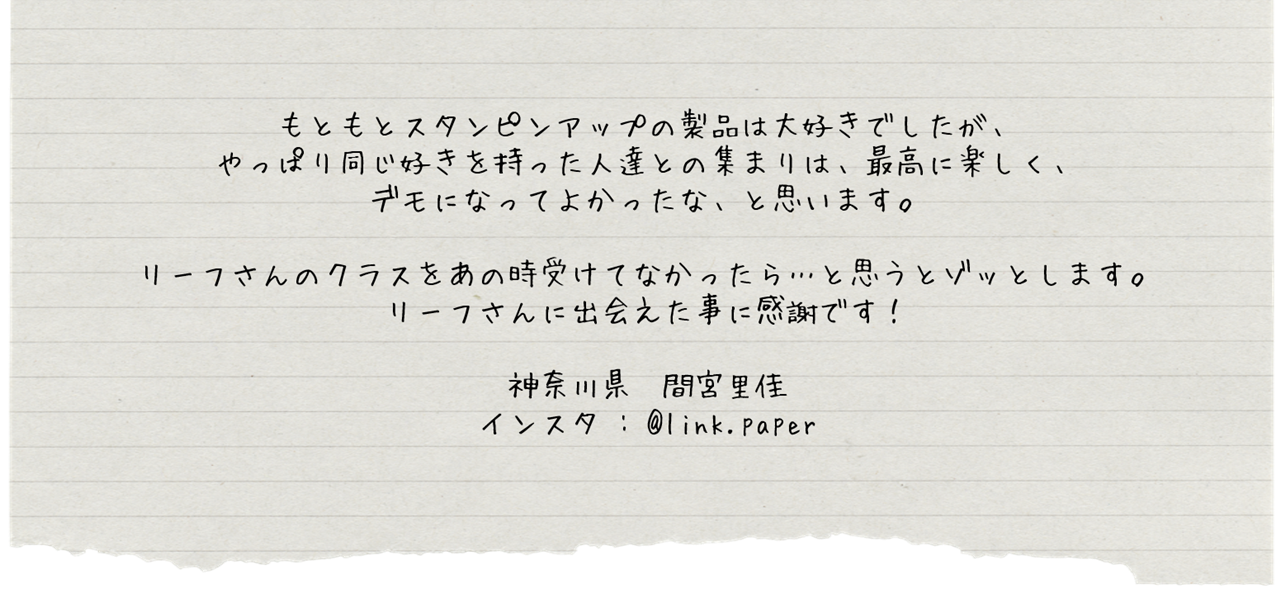 もともとスタンピンアップの製品は大好きでしたが、
やっぱり同じ好きを持った人達との集まりは、最高に楽しく、
デモになってよかったな、と思います。
リーフさんのクラスをあの時受けてなかったら…と思うとゾッとします。
リーフさんに出会えた事に感謝です！
神奈川県　間宮里佳
インスタ：@link.paper